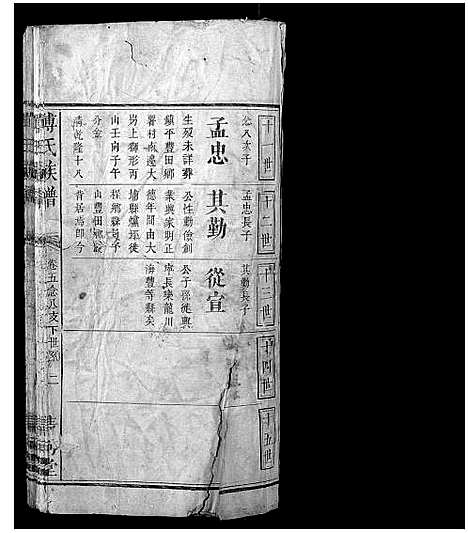 十一世
念八太子
孟忠
生歿未詳葬
鎮平豐田鄉
署村南邊大
崗上獅形丙
山壬向子午
分金
清乾隆十八
十二世
孟忠長子
其勤
公性勤儉創
業興家明正
德年間由大
埔縣爐坪徙
程鄉縣
山豐田
十三世
其勤長子
從宣
公子孫徙興
寧長樂龍川
海豐等縣矣
十四世
十五世
傅氏族譜
卷五念八支下世系
二
堂